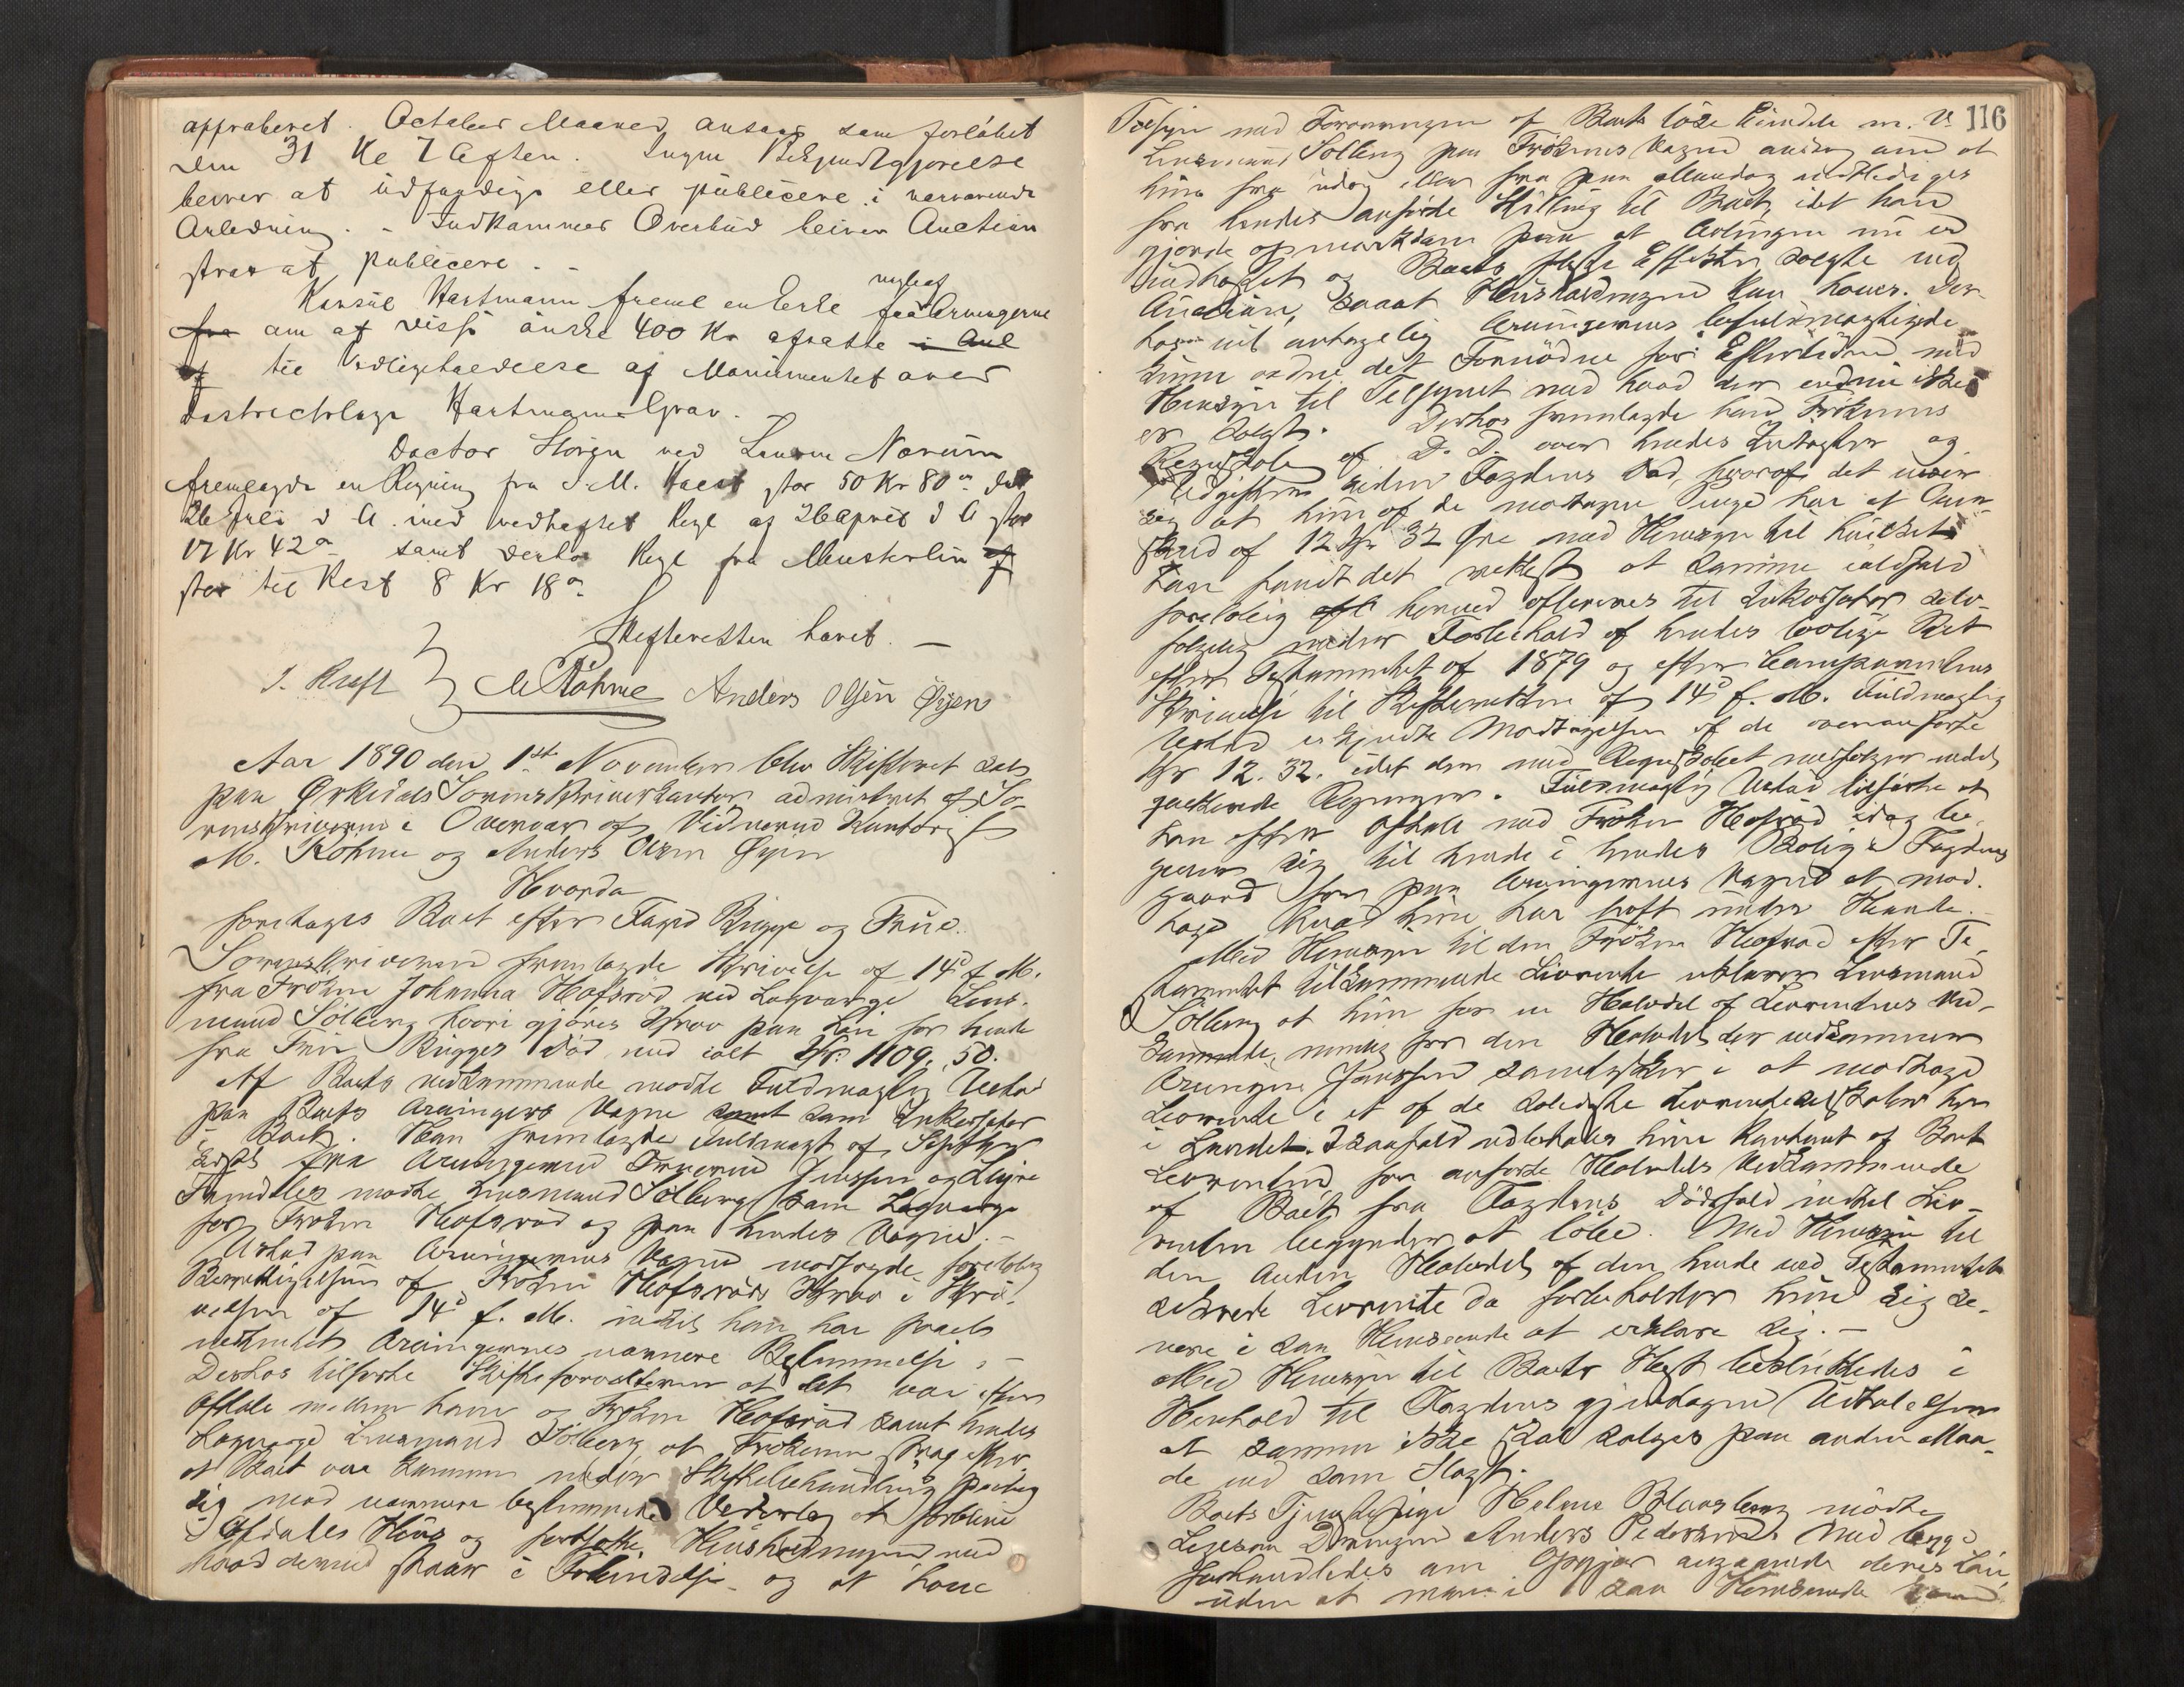 approberet. October Maaned ansaas som forløbet
den 31 Kl 7 Aften. Ingen Bekjendtgjørelse
bliver at udfærdige eller publicere i nærværende
Anledning. - Indkommer Overbud bliver Auction
strax at publicere. -
Konsul Hartmann freml en Erkl fra Arvingerne
om at disse ønske 400 Kr afsatte
til Vedligeholdelse af Monumentet over
Districtslæge Hartmanns Grav. -
Doctor Stören ved Lensm Norum
fremlagde en Regning fra I. M. stor 50 Kr 80 ø dat
26 Juli d A. med vedhæftet Regn af 26 April d A stor
17 Kr 42 ø samt derhos Regn fra Musterlin
stor til Rest 8 Kr 18 ø
Skifteretten hævet. -
M Röhme Anders Olsen Øyen
Aar 1890 den 1st November blev Skifteret sat
paa Orkedals Sorenskriverkontor administreret af So-
renskriveren i Overvær af Vidnerne Kontorist
M. Röhme og Anders Olsen Øyen
Hvorda
foretages Boet efter Foged Rygge og Frue.
Sorenskriveren fremlagde Skrivelse af 14d f. M.
fra Frøken Johanna Hofsrød ved Lagværge Lens-
mand Solberg hvori gjøres Krav paa Løn for hende
fra Fru Rygges Død med ialt Kr. 1109. 50.
Af Boets Vedkommende mødte Fuldmægtig Ustad
paa Boets Arvingers Vegne samt som Inkassator
i Boet. Han fremlagde Fuldmagt af Septbr
sidstl fra Arvingerne Fruerne Jenssen og
Fremdeles mødte Lensmand Solberg som Lagværge
for Frøken Hofsrød og paa hendes Vegne. -
Ustad paa Arvingernes Vegne modsagde foreløbig
Berettigelsen af Frøken Hofsrøds Krav i Skri-
velsen af 14d f. M. indtil han har faaet
indhentet Arvingernes nærmere Bestemmelse. -
Derhos tilførte Skifteforvalteren at det var efter
Aftale mellem ham og Frøken Hofsrød samt hendes
Lagværge Lensmand Solberg at Frøkenen strax efter
at Boet var kommen under Skiftebehandling paatog
sig mod nærmere bestemmende Vederlag at forblive
i Afdødes Hus og fortsætte Husholdningen med
hvad dermed staar i Forbindelse og at have
116
Tilsyn med Forvaringen af Boets løse Eiendele m. V.
Lensmand Solberg paa Frøkenens Vegne androg om at
hun fra idag eller fra paa Mandag entlediges
fra hendes anførte Stilling til Boet, idet han
gjorde opmærksom paa at Avlingen nu er
indhøstet og Boets fleste Effekter solgte ved
Auction, saaat Husholdningen kan hæves. Der-
hos vil antagelig Arvingernes befuldmægtigede
kunne ordne det Fornødne for Eftertiden med
Hensyn til Tilsynet med hvad der endnu ikke
er solgt. Derhos fremlagde han Frøkenens
Regnskab af D. D. over hendes Indtægter og
Udgifter siden Fogdens Død, hvoraf det viser
sig at hun af de modtagne Penge har et Over-
skud af 12 Kr 32 Øre med Hensyn til hvilket
han fandt det rettest at samme ialdfald
foreløbig herved afleveres til Inkassator selv-
følgelig under Forbehold af hendes lovlige Ret
efter Testamentet af 1879 og efter
Skrivelse til Skifteretten af 14d f. M. Fuldmægtig
Ustad erkjendte Modtagelsen af de ovenanførte
Kr 12. 32. idet der med Regnskabet medfølger
qvitterede Regninger. Fuldmægtig Ustad tilførte at
han efter Aftale med Frøken Hofsrød idag be-
giver sig til hende i hendes Bolig i Fogdens
gaard for paa Arvingernes Vegne at mod-
tage hvad hun har havt under Hænde.
Med Hensyn til den Frøken Hofsrød efter Te-
stamentet tilkommende Livrente erklærer Lensmand
Solberg at hun for en Halvdel af Livrentens Ved-
kommende, nemlig for den Halvdel der vedkommer
Arvingen Jenssen samtykker i at modtage
Livrente i et af de solideste Livrenteselskaber her
i Landet. Isaafald udbetales hende kontant af Boet
Livrenten for anførte Halvdels Vedkommende
af Boet fra Fogdens Dødsfald indtil Liv-
renten begynder at løbe. Med Hensyn til
den anden Halvdel af den hende ved Testamentet
sikrede Livrente da forbeholder hun sig se-
nere i saa Henseende at erklære sig. -
Med Hensyn til Boets Hest besluttedes i
Henhold til Fogdens gjentagne Udtalelser
at samme ikke skal sælges paa anden Maa-
de end som Slagt.
Boets Tjenestepige Helene mødte
Ligesaa Drengen Anders Pedersen Med begge
forhandledes om Opgjør angaaende deres Løn
uden at man i saa Henseende